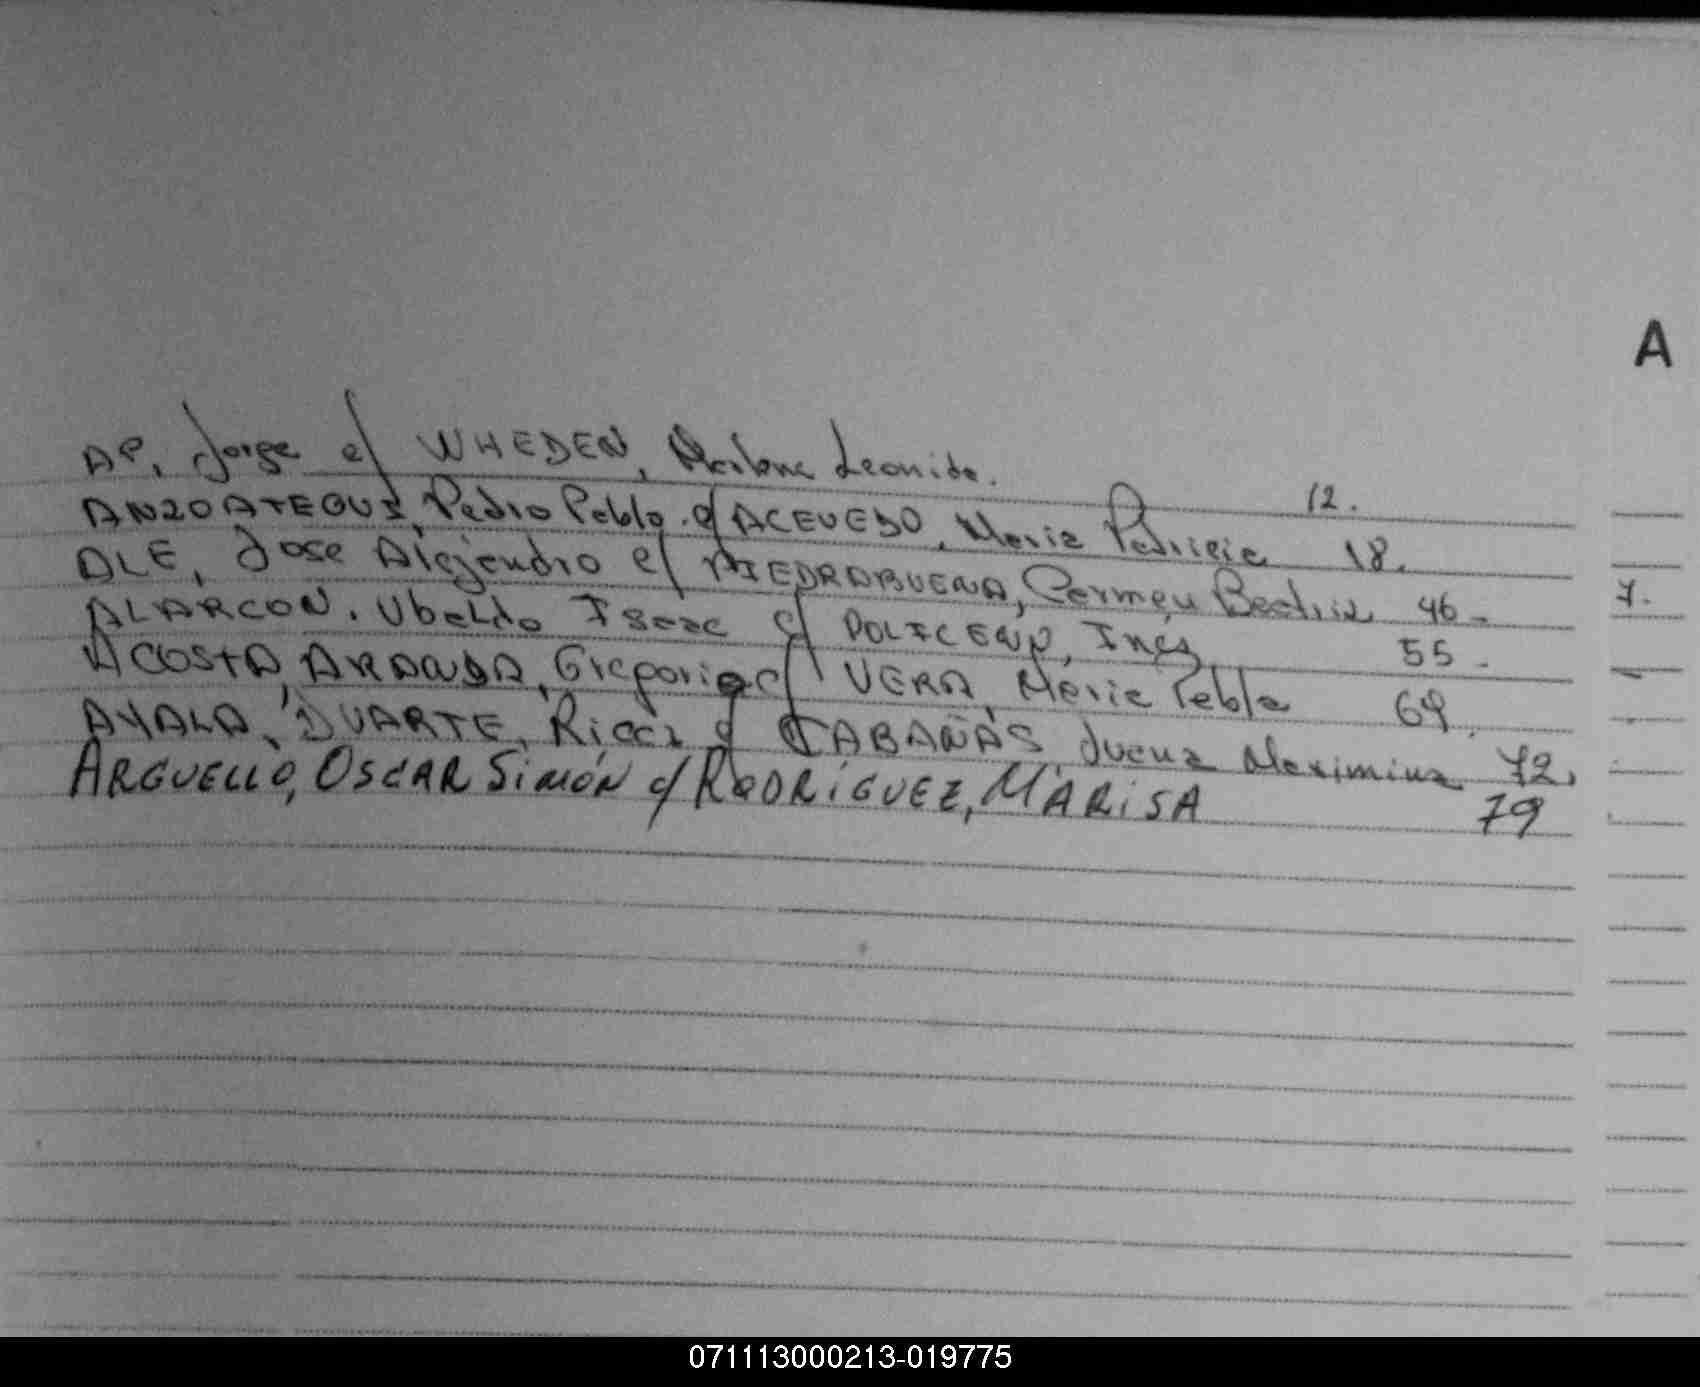 A
AP, Jorge c/ WHEDEN, Marlene Leonida. 12.
ANZOATEGUI, Pedro Pablo. c/ ACEVEDO, Maria Patricia 18.
ALE, Jose Alejandro c/ PIEDRABUENA, Carmen Beatriz 46-
7.
ALARCON. Ubaldo Isaac c/ POLICENO, Ines 55-
ACOSTA, ARANDA, Gregorio c/ VERA, Maria Pabla 69.
AYALA, DUARTE, c/ CABAÑAS, Juana Maximina 72.
ARGUELLO, OSCAR SIMÓN c/ RODRIGUEZ, MARISA 79
071113000213-019775